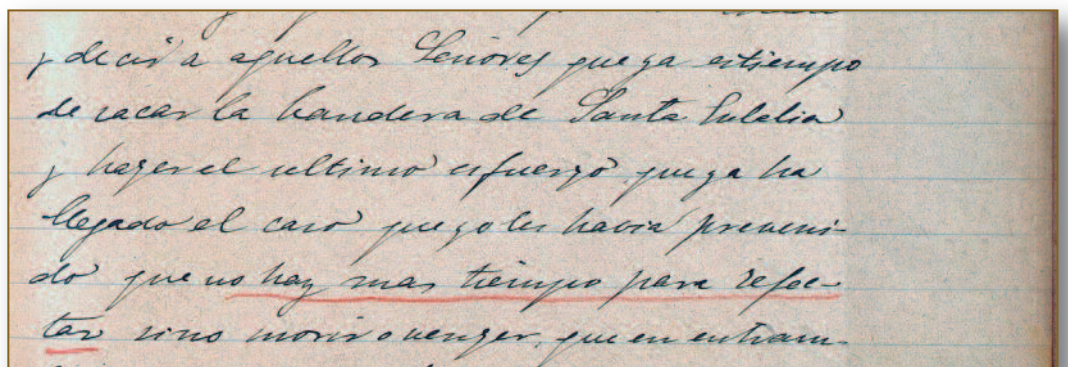 y decir a aquellos Señores que ya es tiempo
de sacar la bandera de Santa Eulalia
y hazer el ultimo esfuerzo que ya ha
llegado el caso que yo les havia preveni-
do que no hay mas tiempo para refec-
tar sino morir o venzer, que en entram-